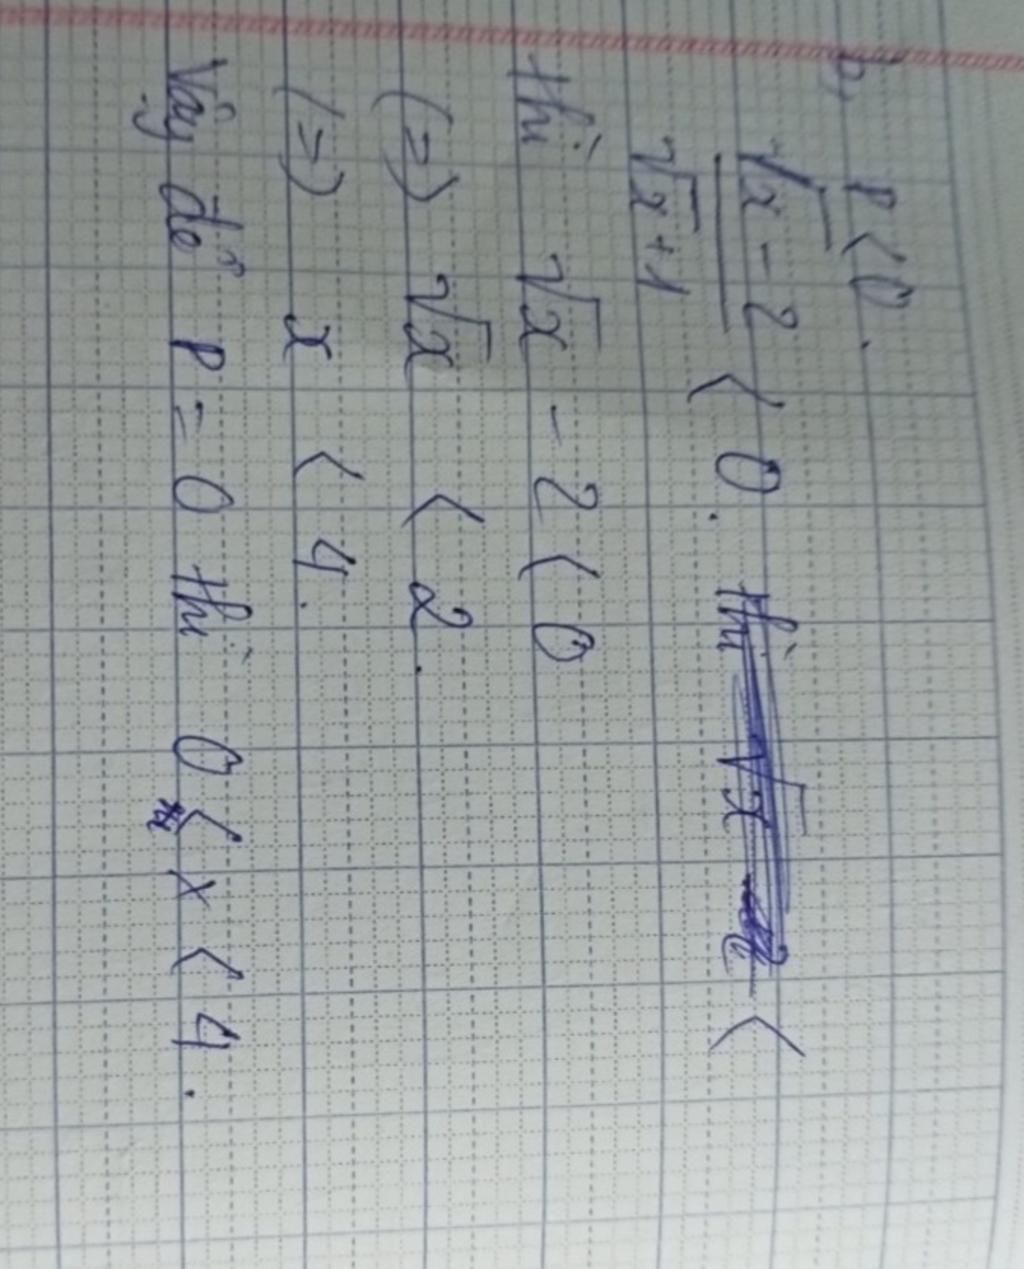 b, P < 0.
√x - 2 / √x + 1 < 0. thì √x - 2 <
thì √x - 2 < 0
(=) √x < 2.
(=) x < 4.
Vậy để P = 0 thì 0 ≤ x < 4.